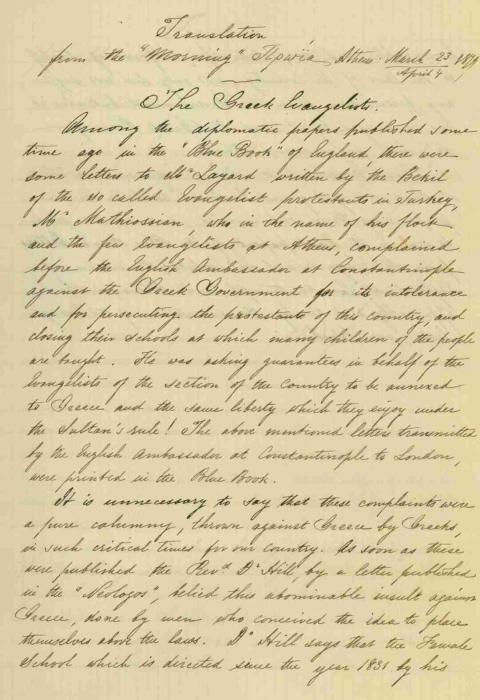 Translation
from the "Morning" Πρωΐα, Athens March 23 1879
April 4
The Greek Evangelists.
Among the diplomatic papers published some
time ago in the "Blue Book" of England, there were
some letters to Mr Layard written by the Bekil
of the so called Evangelist protestants in Turkey,
Mr Mathiossian, who in the name of his flock
and the few Evangelists at Athens, complained
before the English Ambassador at Constantinople
against the Greek Government for its intolerance
and for persecuting the protestants of this country, and
closing their schools at which many children of the people
are taught. He was asking guarantees in behalf of the
Evangelists of the section of the country to be annexed
to Greece and the same liberty which they enjoy under
the Sultan's rule! The above mentioned letters transmitted
by the English Ambassador at Constantinople to London,
were printed in the Blue Book.
It is unnecessary to say that these complaints were
a pure calumny, thrown against Greece by Greeks,
in such critical times for our country. As soon as these
were published the Revd Dr Hill, by a letter published
in the "Neologos", belied this abominable insult against
Greece, done by men who conceived the idea to place
themselves above the laws. Dr Hill says that the Female
School which is directed since the year 1831 by his